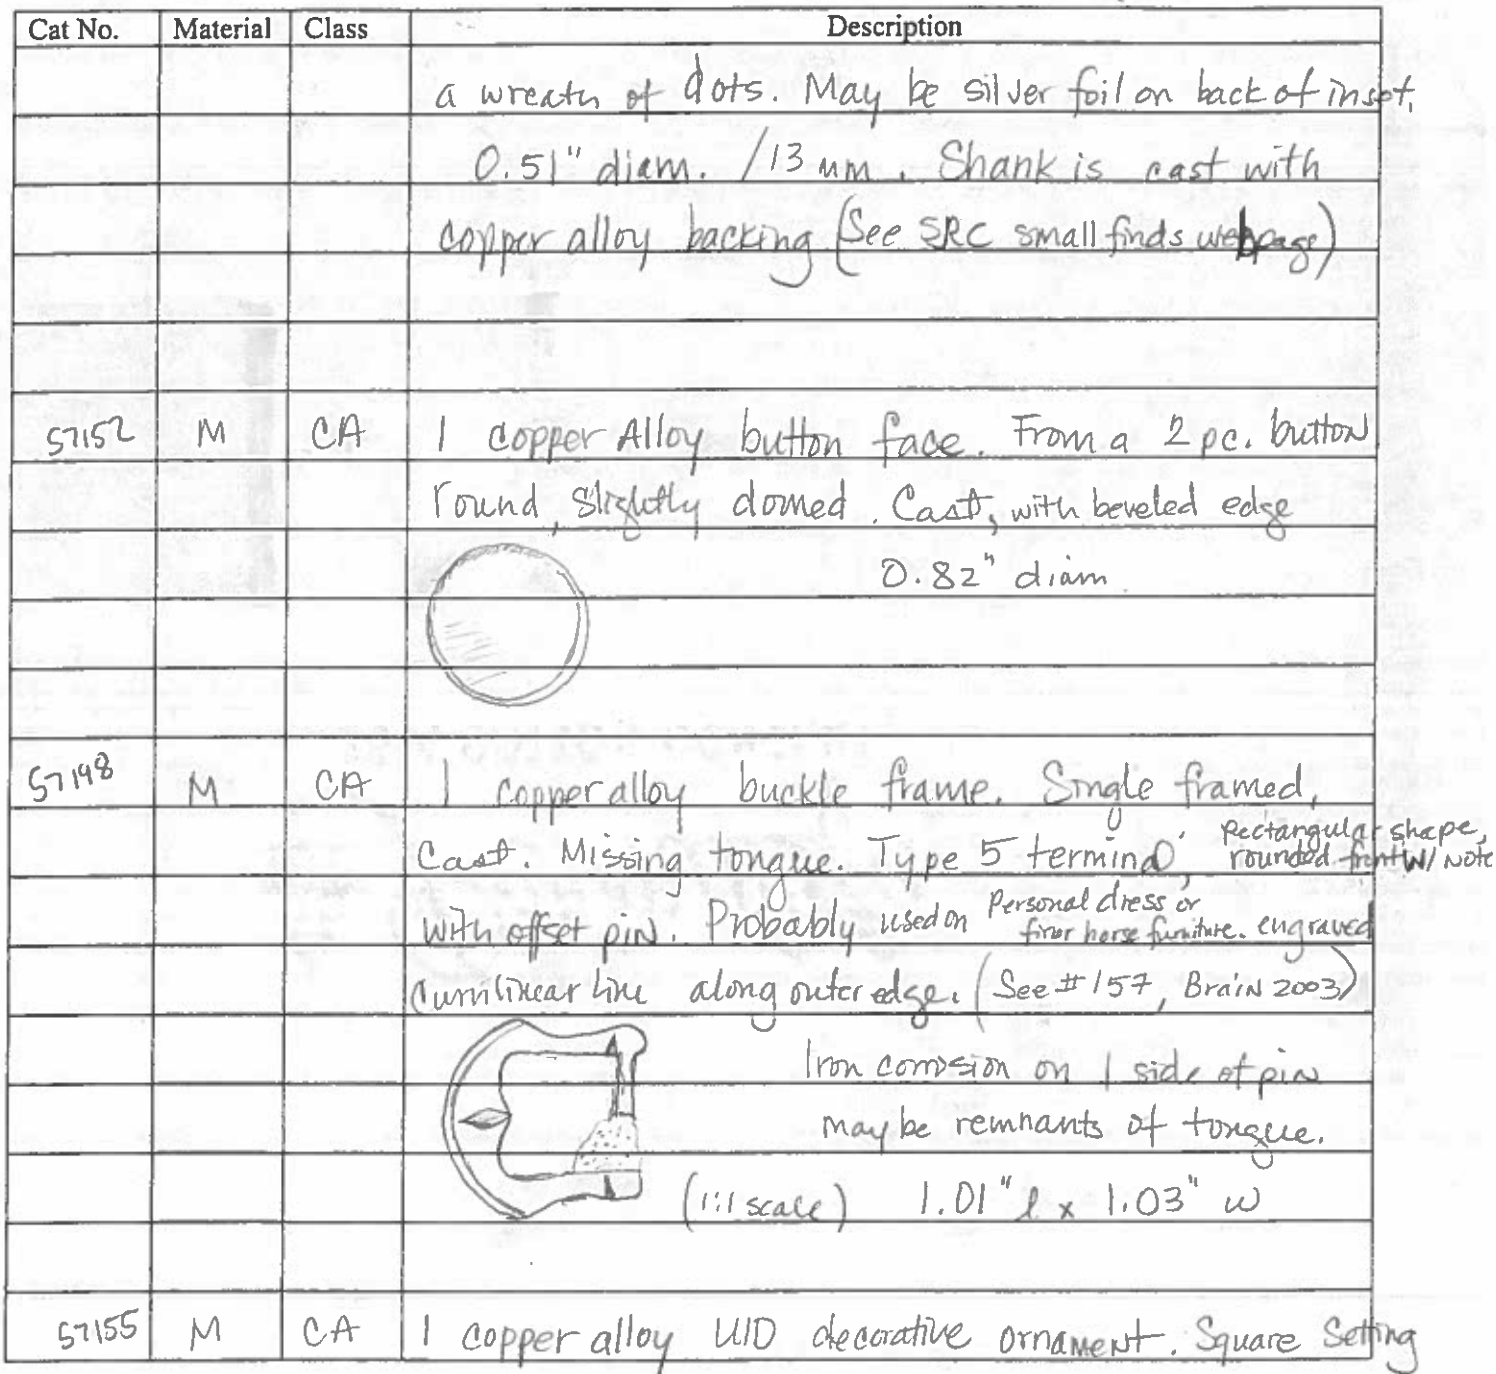 Cat No. Material Class Description
a wreath of dots. May be silver foil on back of inset.
0.51" diam. / 13 mm. Shank is cast with
copper alloy backing (See SRC small finds webpage)
57152 M CA 1 copper Alloy button face. From a 2 pc. button
round, slightly domed. Cast, with beveled edge
0.82" diam
57148 M CA 1 copper alloy buckle frame. Single framed,
Cast. Missing tongue. Type 5 terminal, Rectangular shape, rounded front w/ note
with offset pin. Probably used on Personal dress or finer horse furniture. engraved
Curvilinear line along outer edge. (See #157, Brain 2003)
Iron corrosion on 1 side of pin
may be remnants of tongue.
(1:1 scale) 1.01" l x 1.03" w
57155 M CA 1 copper alloy UID decorative ornament. Square Setting